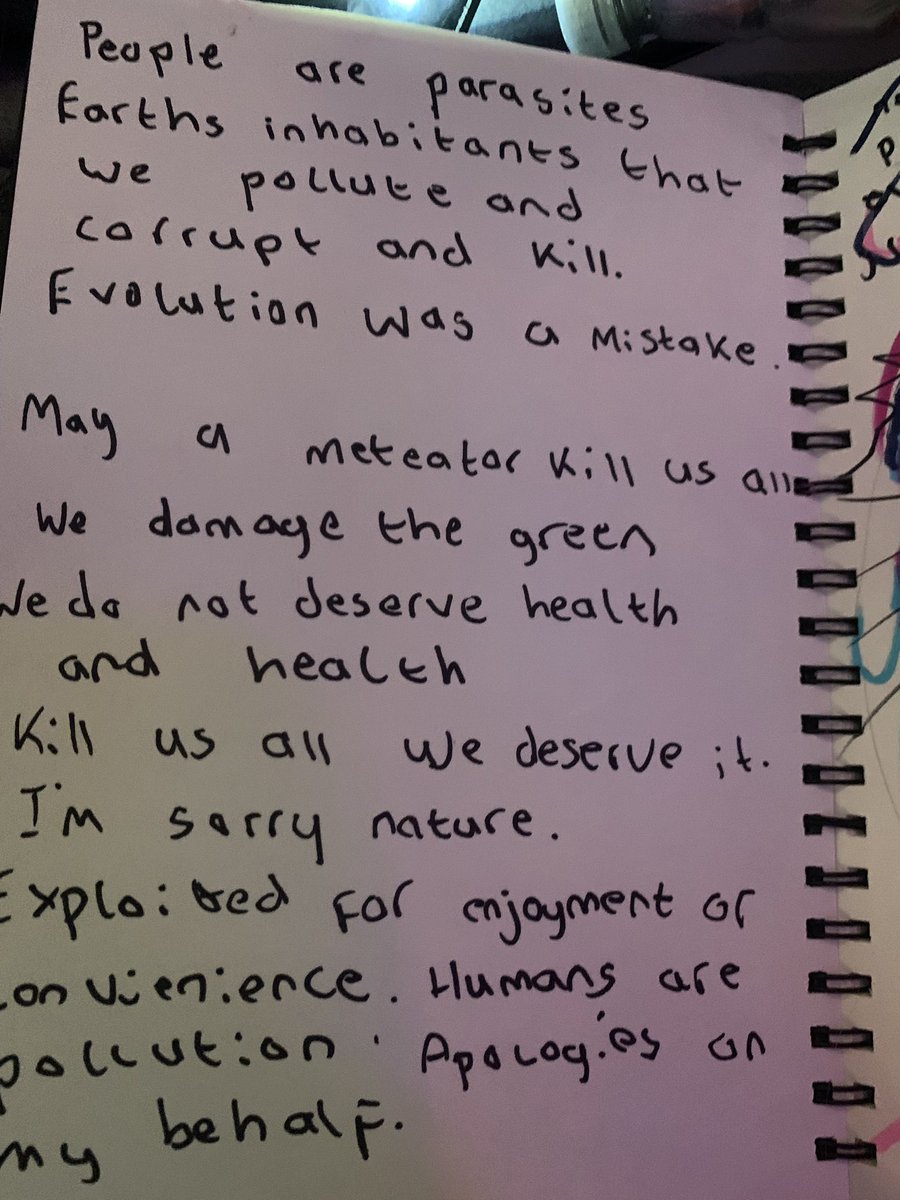 People are parasites
Earths inhabitants that
we pollute and
corrupt and kill.
Evolution was a mistake.
May a meteator kill us all
We damage the green
We do not deserve health
and health
Kill us all we deserve it.
I'm sorry nature.
Exploited for enjoyment or
convienience. Humans are
pollution. Apologies on
my behalf.